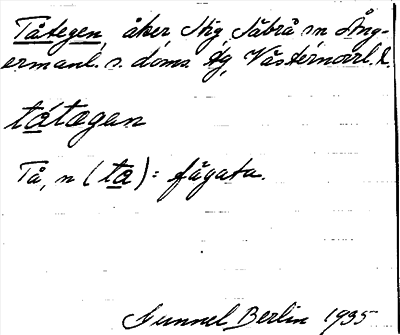 Tåtegen, åker, Stig, Säbrå sn Ång-
ermanl. s. doms. fg, Västernorrl. l.
tåtægan
Tå, n (ta): fägata.
Gunnel Berlin 1935